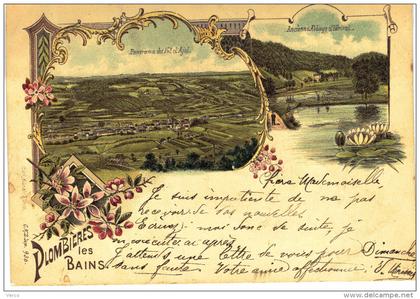 Panorama du Val d'Ajol.
Ancienne Abbaye d'Hérival.
PLOMBIÈRES
les
BAINS.
Chère Mademoiselle
Je suis impatiente de ne pas
recevoir de vos nouvelles
Ecrivez-moi donc de suite, je
après.
J'attends une lettre de vous pour Dimanche
sans faute Votre amie affectionnée